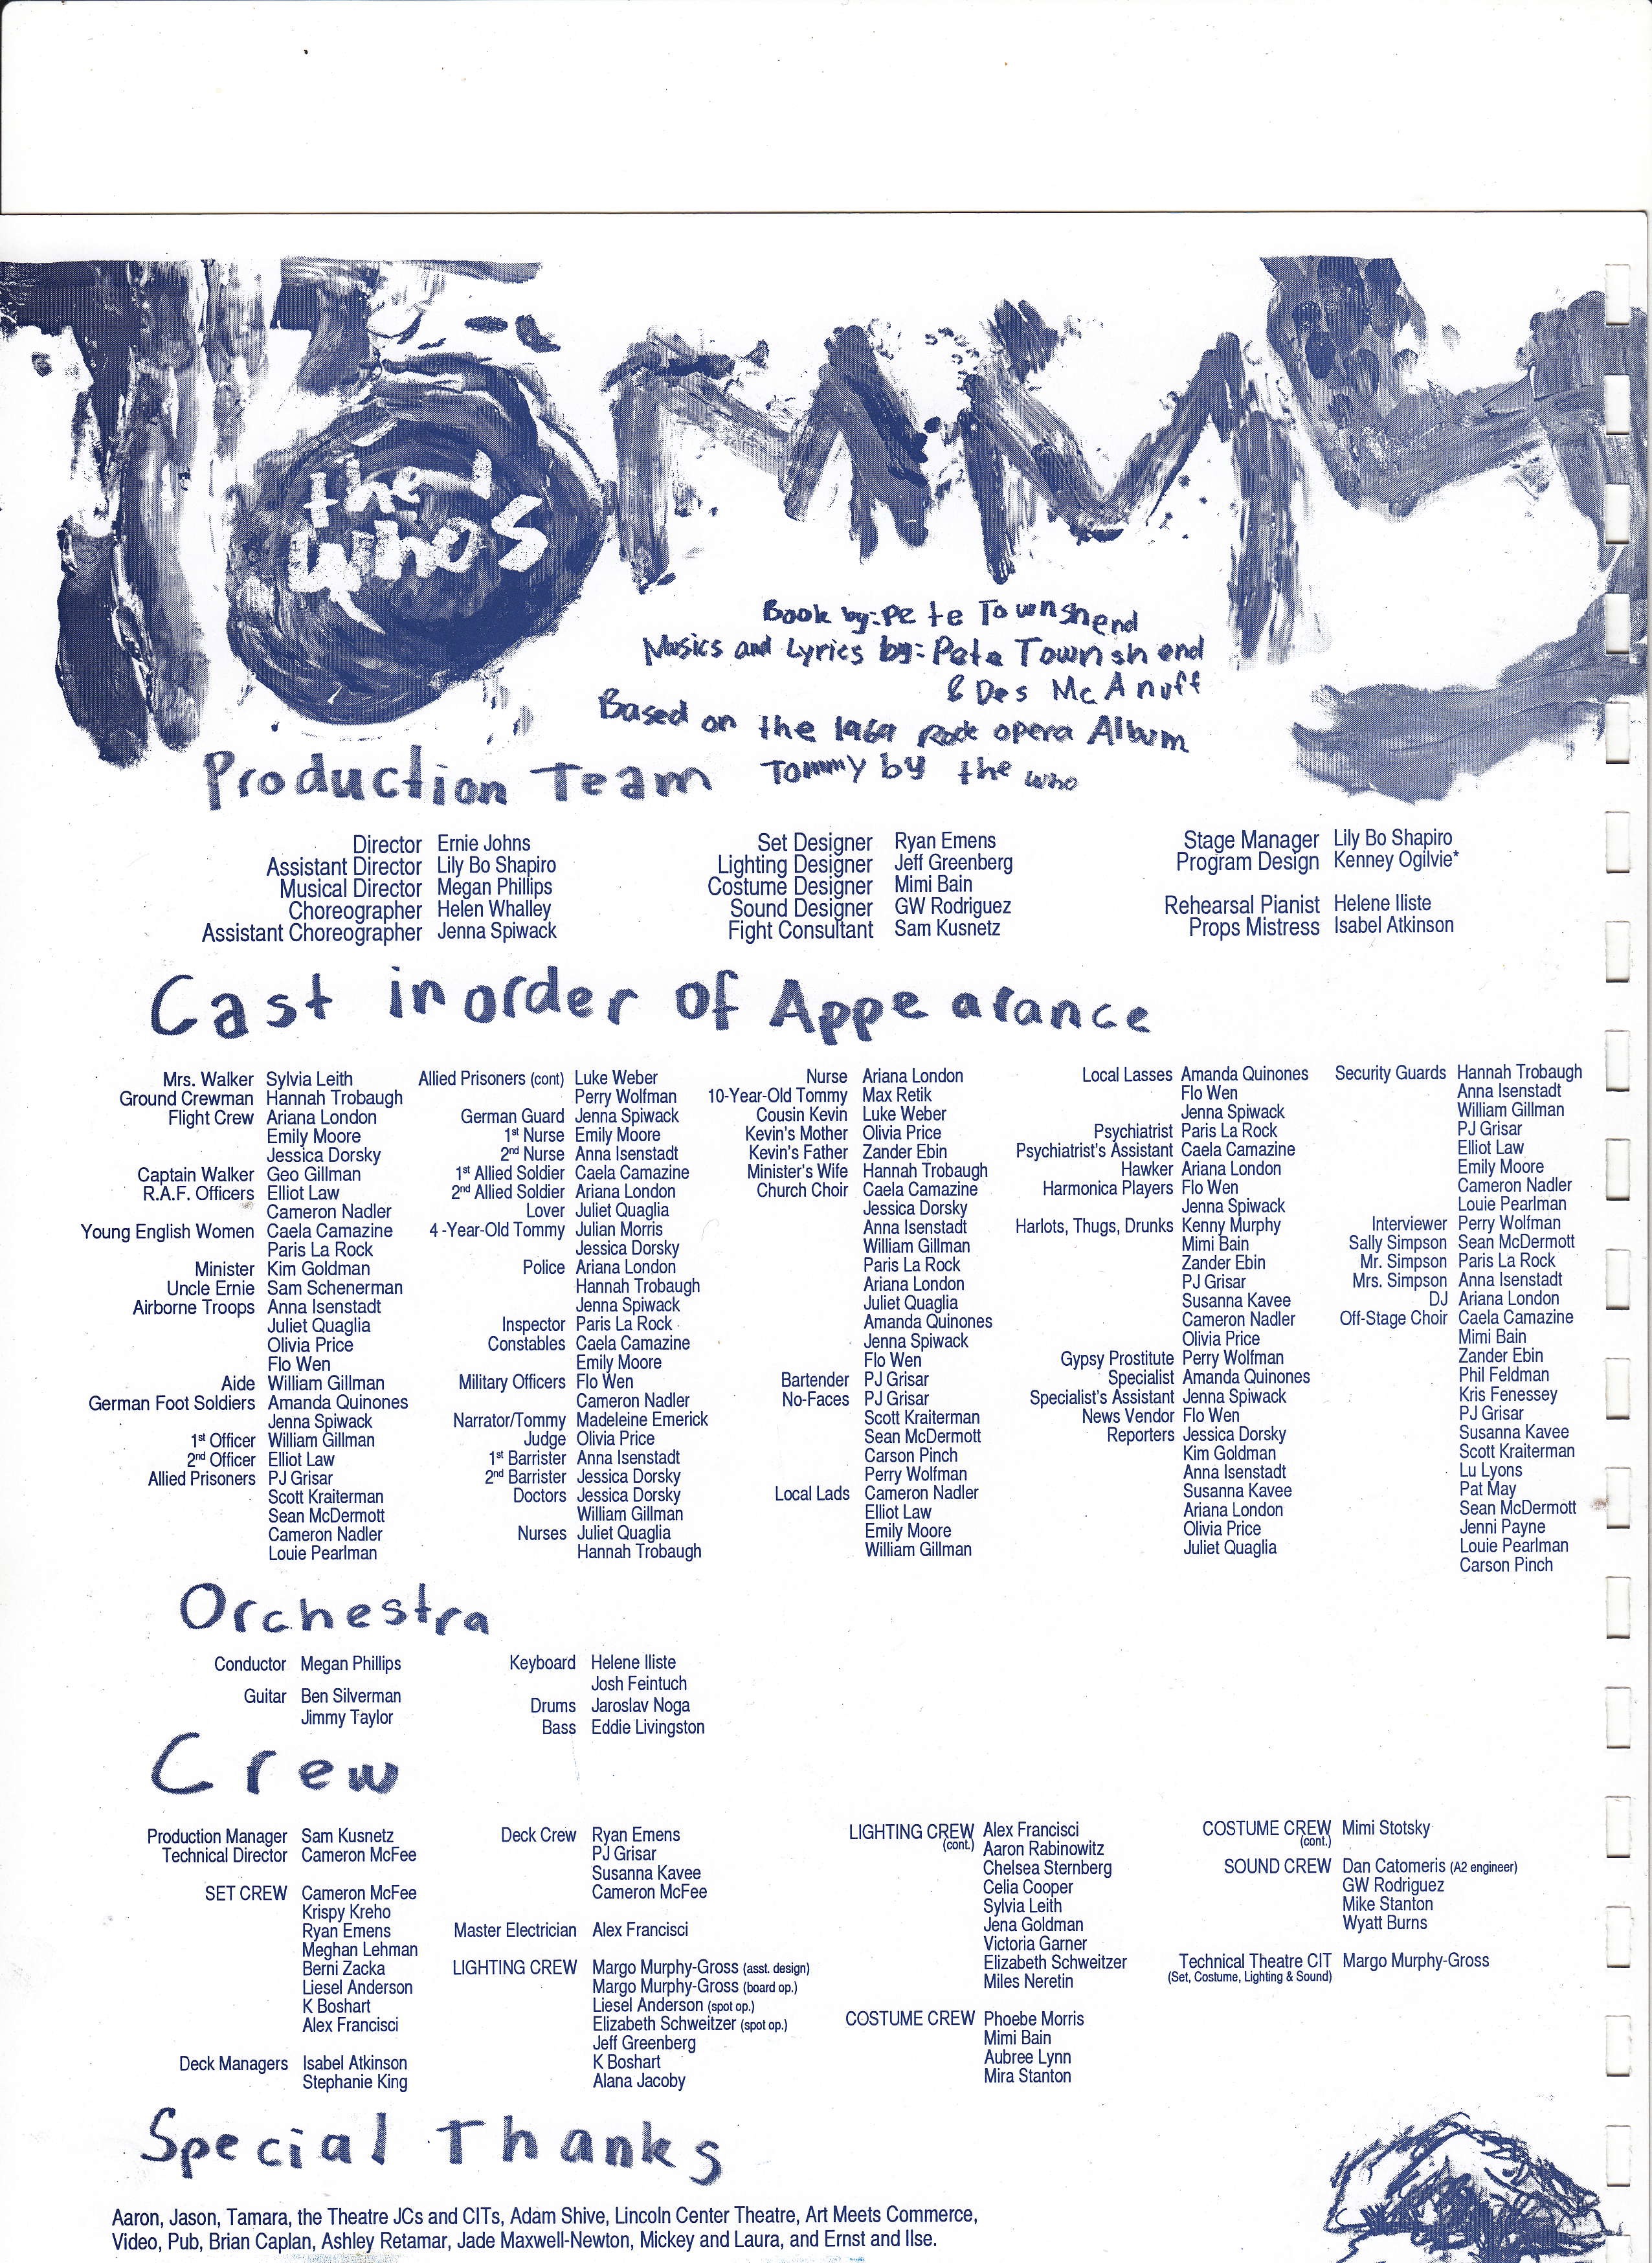 the
who's
TOMMY
Book by: Pete Townshend
Musics and Lyrics by: Pete Townshend
& Des McAnuff
Based on the 1969 Rock opera Album
Tommy by the who
Production Team
Director Ernie Johns
Assistant Director Lily Bo Shapiro
Musical Director Megan Phillips
Choreographer Helen Whalley
Assistant Choreographer Jenna Spiwack
Set Designer Ryan Emens
Lighting Designer Jeff Greenberg
Costume Designer Mimi Bain
Sound Designer GW Rodriguez
Fight Consultant Sam Kusnetz
Stage Manager Lily Bo Shapiro
Program Design Kenney Ogilvie*
Rehearsal Pianist Helene Iliste
Props Mistress Isabel Atkinson
Cast in order of Appearance
Mrs. Walker Sylvia Leith
Ground Crewman Hannah Trobaugh
Flight Crew Ariana London
Emily Moore
Jessica Dorsky
Captain Walker Geo Gillman
R.A.F. Officers Elliot Law
Cameron Nadler
Young English Women Caela Camazine
Paris La Rock
Minister Kim Goldman
Uncle Ernie Sam Schenerman
Airborne Troops Anna Isenstadt
Juliet Quaglia
Olivia Price
Flo Wen
Aide William Gillman
German Foot Soldiers Amanda Quinones
Jenna Spiwack
1st Officer William Gillman
2nd Officer Elliot Law
Allied Prisoners PJ Grisar
Scott Kraiterman
Sean McDermott
Cameron Nadler
Louie Pearlman
Allied Prisoners (cont) Luke Weber
Perry Wolfman
German Guard Jenna Spiwack
1st Nurse Emily Moore
2nd Nurse Anna Isenstadt
1st Allied Soldier Caela Camazine
2nd Allied Soldier Ariana London
Lover Juliet Quaglia
4 -Year-Old Tommy Julian Morris
Jessica Dorsky
Police Ariana London
Hannah Trobaugh
Jenna Spiwack
Inspector Paris La Rock
Constables Caela Camazine
Emily Moore
Military Officers Flo Wen
Cameron Nadler
Narrator/Tommy Madeleine Emerick
Judge Olivia Price
1st Barrister Anna Isenstadt
2nd Barrister Jessica Dorsky
Doctors Jessica Dorsky
William Gillman
Nurses Juliet Quaglia
Hannah Trobaugh
Nurse Ariana London
10-Year-Old Tommy Max Retik
Cousin Kevin Luke Weber
Kevin's Mother Olivia Price
Kevin's Father Zander Ebin
Minister's Wife Hannah Trobaugh
Church Choir Caela Camazine
Jessica Dorsky
Anna Isenstadt
William Gillman
Paris La Rock
Ariana London
Juliet Quaglia
Amanda Quinones
Jenna Spiwack
Flo Wen
Bartender PJ Grisar
No-Faces PJ Grisar
Scott Kraiterman
Sean McDermott
Carson Pinch
Perry Wolfman
Local Lads Cameron Nadler
Elliot Law
Emily Moore
William Gillman
Local Lasses Amanda Quinones
Flo Wen
Jenna Spiwack
Psychiatrist Paris La Rock
Psychiatrist's Assistant Caela Camazine
Hawker Ariana London
Harmonica Players Flo Wen
Jenna Spiwack
Harlots, Thugs, Drunks Kenny Murphy
Mimi Bain
Zander Ebin
PJ Grisar
Susanna Kavee
Cameron Nadler
Olivia Price
Gypsy Prostitute Perry Wolfman
Specialist Amanda Quinones
Specialist's Assistant Jenna Spiwack
News Vendor Flo Wen
Reporters Jessica Dorsky
Kim Goldman
Anna Isenstadt
Susanna Kavee
Ariana London
Olivia Price
Juliet Quaglia
Security Guards Hannah Trobaugh
Anna Isenstadt
William Gillman
PJ Grisar
Elliot Law
Emily Moore
Cameron Nadler
Louie Pearlman
Interviewer Perry Wolfman
Sally Simpson Sean McDermott
Mr. Simpson Paris La Rock
Mrs. Simpson Anna Isenstadt
DJ Ariana London
Off-Stage Choir Caela Camazine
Mimi Bain
Zander Ebin
Phil Feldman
Kris Fenessey
PJ Grisar
Susanna Kavee
Scott Kraiterman
Lu Lyons
Pat May
Sean McDermott
Jenni Payne
Louie Pearlman
Carson Pinch
Orchestra
Conductor Megan Phillips
Guitar Ben Silverman
Jimmy Taylor
Keyboard Helene Iliste
Josh Feintuch
Drums Jaroslav Noga
Bass Eddie Livingston
Crew
Production Manager Sam Kusnetz
Technical Director Cameron McFee
SET CREW Cameron McFee
Krispy Kreho
Ryan Emens
Meghan Lehman
Berni Zacka
Liesel Anderson
K Boshart
Alex Francisci
Deck Managers Isabel Atkinson
Stephanie King
Deck Crew Ryan Emens
PJ Grisar
Susanna Kavee
Cameron McFee
Master Electrician Alex Francisci
LIGHTING CREW Margo Murphy-Gross (asst. design)
Margo Murphy-Gross (board op.)
Liesel Anderson (spot op.)
Elizabeth Schweitzer (spot op.)
Jeff Greenberg
K Boshart
Alana Jacoby
LIGHTING CREW Alex Francisci
(cont.) Aaron Rabinowitz
Chelsea Sternberg
Celia Cooper
Sylvia Leith
Jena Goldman
Victoria Garner
Elizabeth Schweitzer
Miles Neretin
COSTUME CREW Phoebe Morris
Mimi Bain
Aubree Lynn
Mira Stanton
COSTUME CREW Mimi Stotsky
(cont.)
SOUND CREW Dan Catomeris (A2 engineer)
GW Rodriguez
Mike Stanton
Wyatt Burns
Technical Theatre CIT Margo Murphy-Gross
(Set, Costume, Lighting & Sound)
Special Thanks
Aaron, Jason, Tamara, the Theatre JCs and CITs, Adam Shive, Lincoln Center Theatre, Art Meets Commerce,
Video, Pub, Brian Caplan, Ashley Retamar, Jade Maxwell-Newton, Mickey and Laura, and Ernst and Ilse.